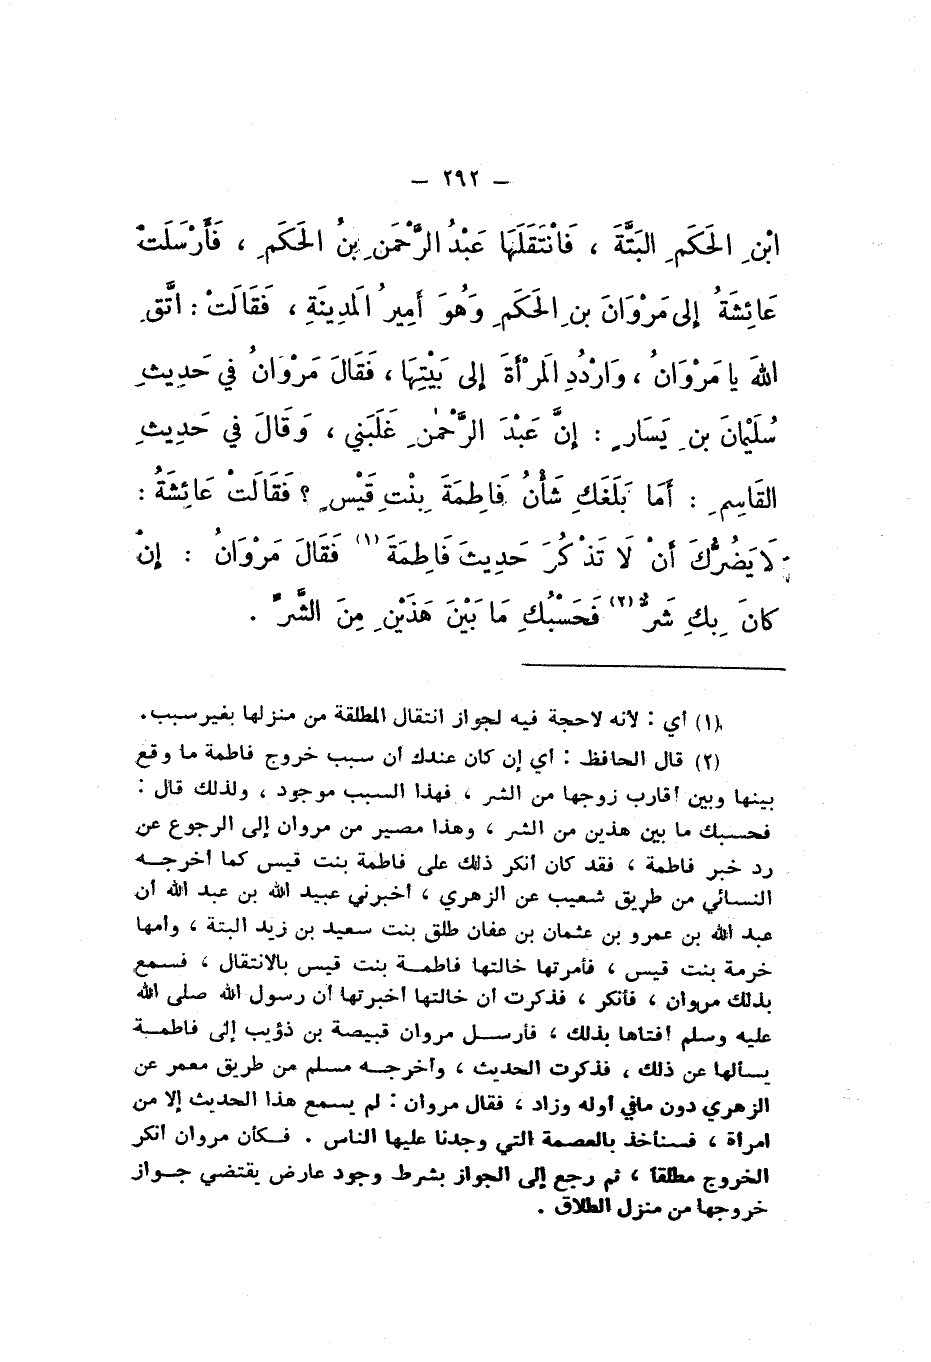 — ٢٩٢ —
ابْنِ الحَكَمِ البَتَّةَ ، فَانْتَقَلَهَا عَبْدُ الرَّحْمَنِ بنُ الحَكَمِ ، فَأَرْسَلَتْ
عَائِشَةُ إلى مَرْوَانَ بنِ الحَكَمِ وَهُوَ أَمِيرُ المَدِينَةِ ، فَقَالَتْ : اتَّقِ
اللهَ يا مَرْوَانُ ، وَارْدُدِ المَرْأَةَ إلى بَيْتِهَا ، فَقَالَ مَرْوَانُ في حَدِيثِ
سُلَيْمَانَ بنِ يَسَارٍ : إنَّ عَبْدَ الرَّحْمٰنِ غَلَبَني ، وَقَالَ في حَدِيثِ
القَاسِمِ : أَمَا بَلَغَكِ شَأْنُ فَاطِمَةَ بِنْتِ قَيْسٍ ؟ فَقَالَتْ عَائِشَةُ :
لَا يَضُرُّكَ أَنْ لَا تَذْكُرَ حَدِيثَ فَاطِمَةَ (١) فَقَالَ مَرْوَانُ : إنْ
كانَ بِكِ شَرٌّ (٢) فَحَسْبُكِ مَا بَيْنَ هَذَيْنِ مِنَ الشَّرِّ .
(١) أي : لأنه لاحجة فيه لجواز انتقال المطلقة من منزلها بغير سبب .
(٢) قال الحافظ : أي إن كان عندك أن سبب خروج فاطمة ما وقع
بينها وبين أقارب زوجها من الشر ، فهذا السبب موجود ، ولذلك قال :
فحسبك ما بين هذين من الشر ، وهذا مصير من مروان إلى الرجوع عن
رد خبر فاطمة ، فقد كان أنكر ذلك على فاطمة بنت قيس كما أخرجه
النسائي من طريق شعيب عن الزهري ، أخبرني عبيد الله بن عبد الله أن
عبد الله بن عمرو بن عثمان بن عفان طلق بنت سعيد بن زيد البتة ، وأمها
خرمة بنت قيس ، فأمرتها خالتها فاطمة بنت قيس بالانتقال ، فسمع
بذلك مروان ، فأنكر ، فذكرت أن خالتها أخبرتها أن رسول الله صلى الله
عليه وسلم أفتاها بذلك ، فأرسل مروان قبيصة بن ذؤيب إلى فاطمة
يسألها عن ذلك ، فذكرت الحديث ، وأخرجه مسلم من طريق معمر عن
الزهري دون مافي أوله وزاد ، فقال مروان : لم يسمع هذا الحديث إلا من
امرأة ، فسنأخذ بالعصمة التي وجدنا عليها الناس . فكأن مروان أنكر
الخروج مطلقا ، ثم رجع إلى الجواز بشرط وجود عارض يقتضي جواز
خروجها من منزل الطلاق .